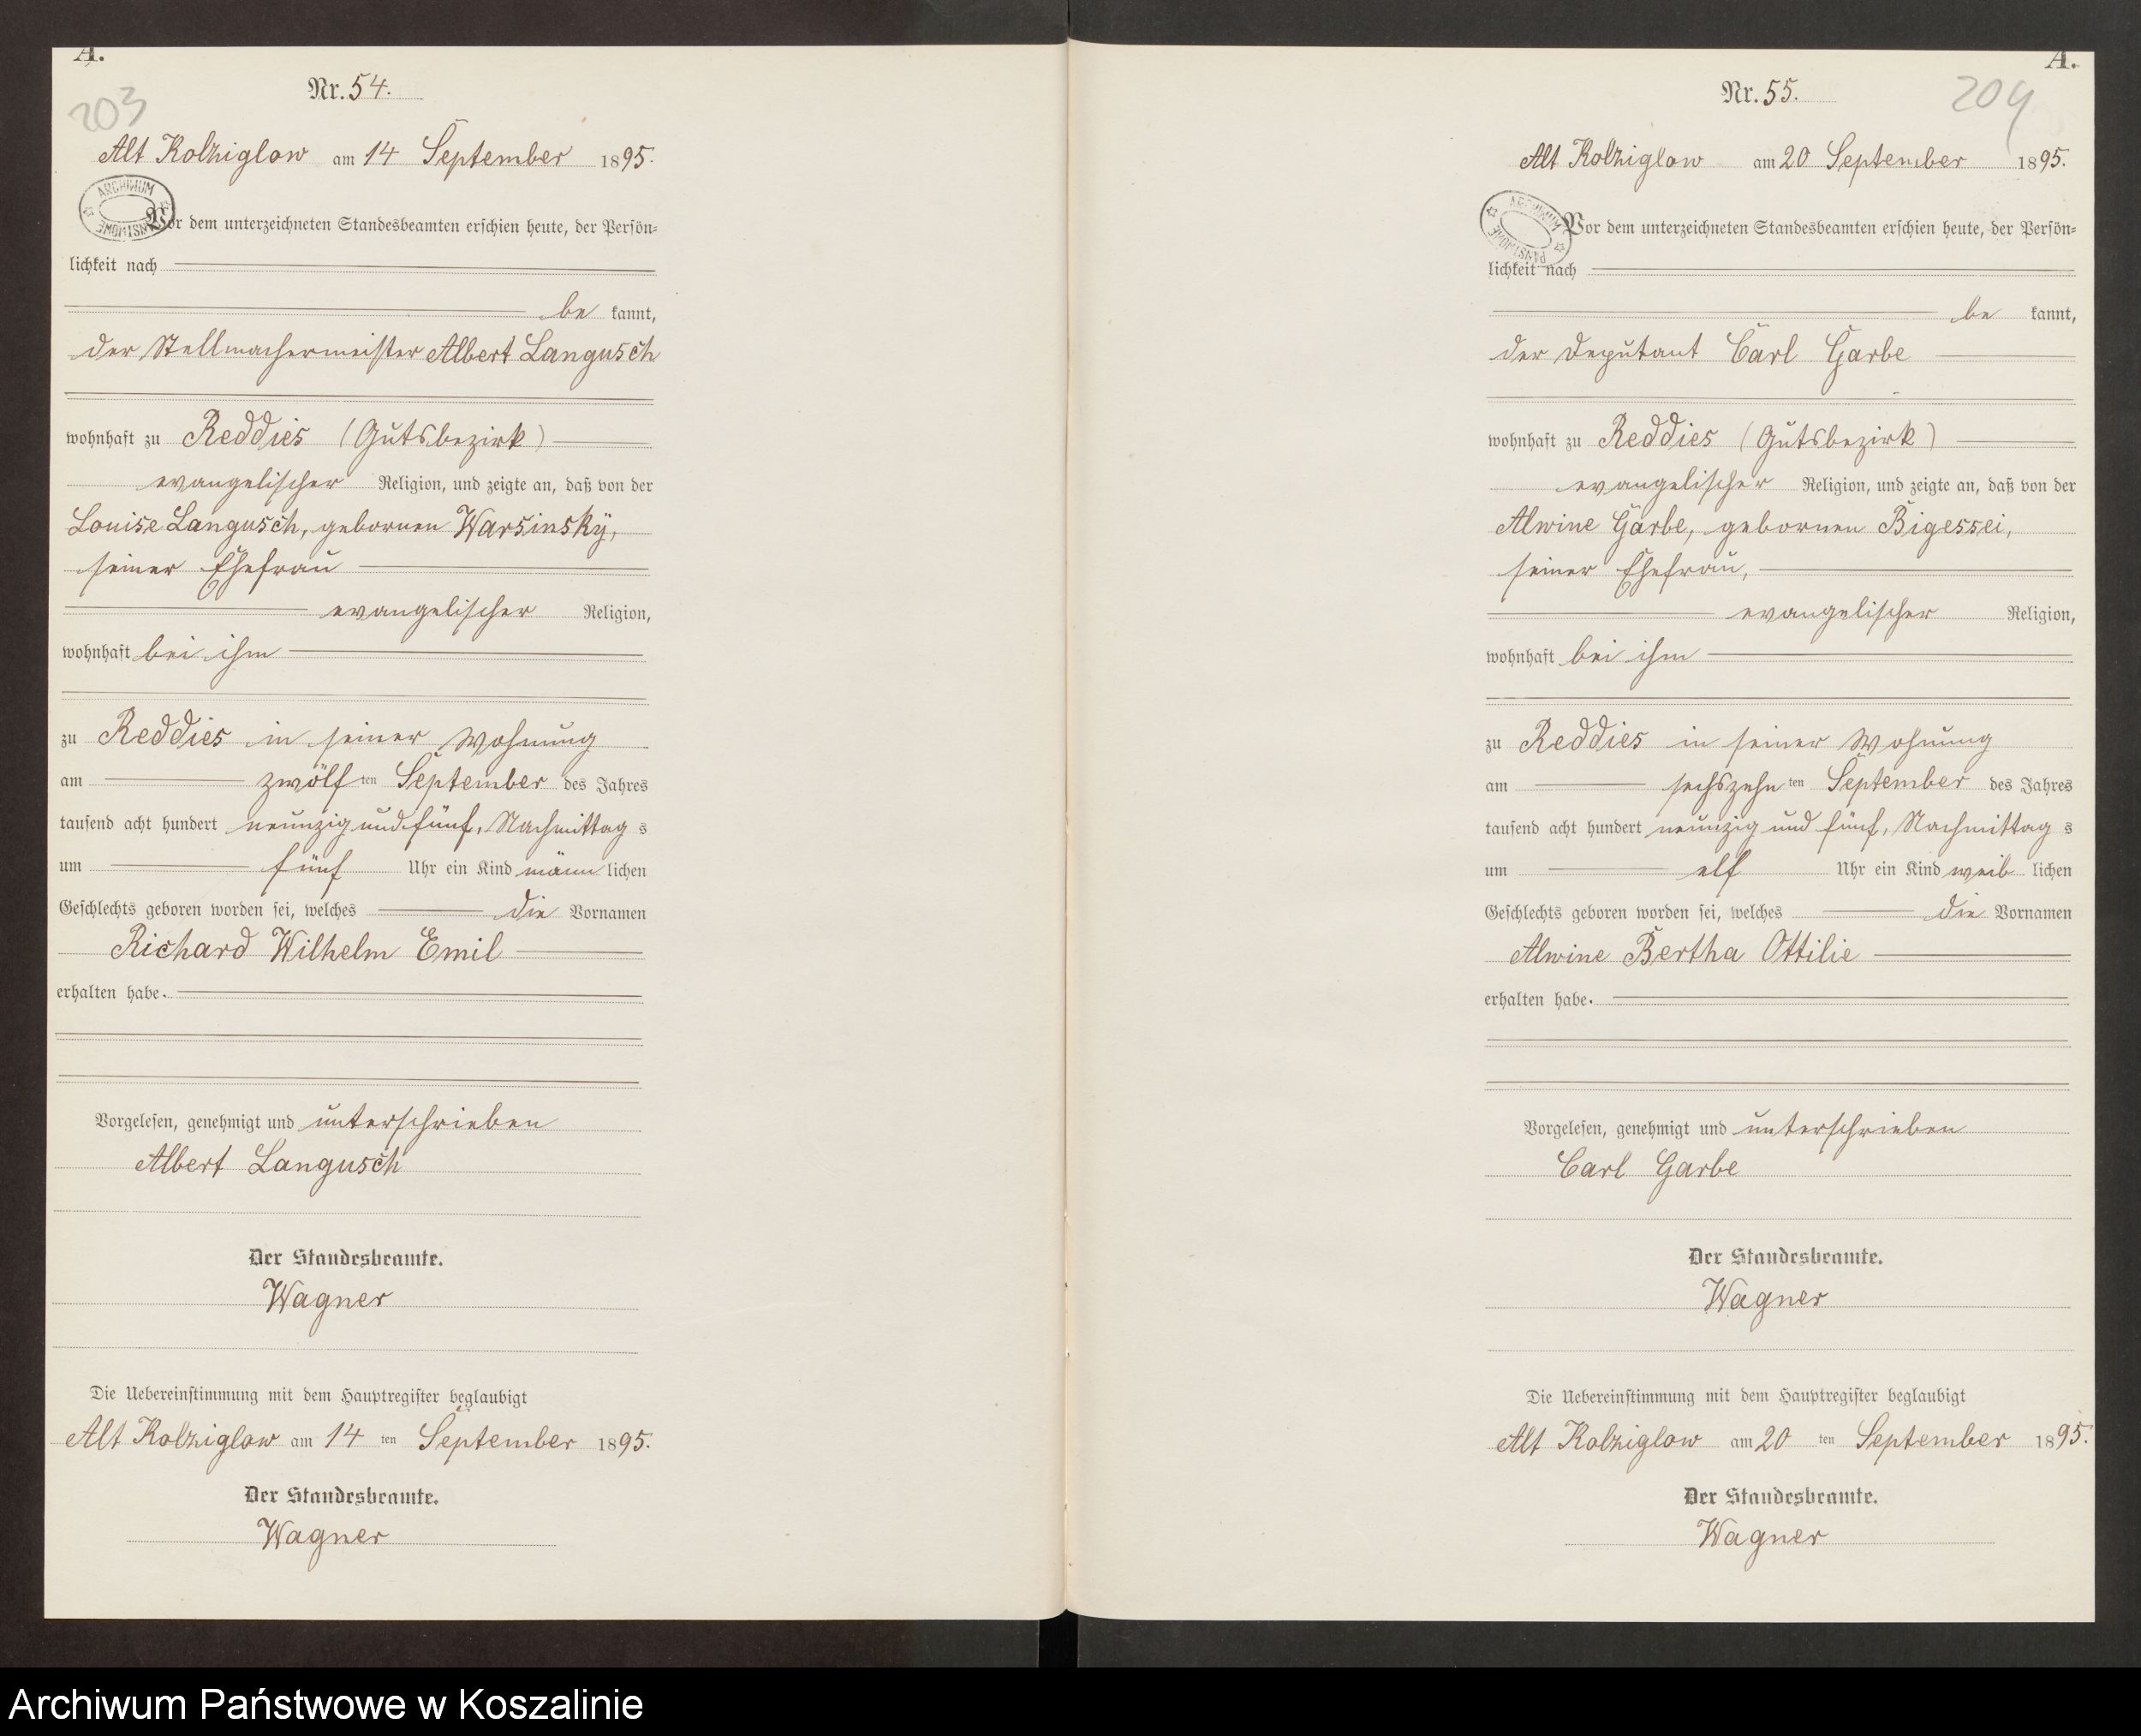 A.
Nr. 54.
203
Alt Kolziglow am 14 September 1895.
ARCHIWUM PAŃSTWOWE
Vor dem unterzeichneten Standesbeamten erschien heute, der Persön-
lichkeit nach
be kannt,
der Stellmachermeister Albert Langusch
wohnhaft zu Reddies (Gutsbezirk)
evangelischer Religion, und zeigte an, daß von der
Louise Langusch, gebornen Warsinsky,
seiner Ehefrau
evangelischer Religion,
wohnhaft bei ihm
zu Reddies in seiner Wohnung
am zwölf ten September des Jahres
tausend acht hundert neunzig und fünf, Nachmittag s
um fünf Uhr ein Kind männ lichen
Geschlechts geboren worden sei, welches die Vornamen
Richard Wilhelm Emil
erhalten habe.
Vorgelesen, genehmigt und unterschrieben
Albert Langusch
Der Standesbeamte.
Wagner
Die Uebereinstimmung mit dem Hauptregister beglaubigt
Alt Kolziglow am 14 ten September 1895.
Der Standesbeamte.
Wagner
A.
Nr. 55.
204
Alt Kolziglow am 20 September 1895.
ARCHIWUM PAŃSTWOWE
Vor dem unterzeichneten Standesbeamten erschien heute, der Persön-
lichkeit nach
be kannt,
der Deputant Carl Garbe
wohnhaft zu Reddies (Gutsbezirk)
evangelischer Religion, und zeigte an, daß von der
Alwine Garbe, gebornen Bigessei,
seiner Ehefrau,
evangelischer Religion,
wohnhaft bei ihm
zu Reddies in seiner Wohnung
am sechszehn ten September des Jahres
tausend acht hundert neunzig und fünf, Nachmittag s
um elf Uhr ein Kind weib lichen
Geschlechts geboren worden sei, welches die Vornamen
Alwine Bertha Ottilie
erhalten habe.
Vorgelesen, genehmigt und unterschrieben
Carl Garbe
Der Standesbeamte.
Wagner
Die Uebereinstimmung mit dem Hauptregister beglaubigt
Alt Kolziglow am 20 ten September 1895.
Der Standesbeamte.
Wagner
Archiwum Państwowe w Koszalinie